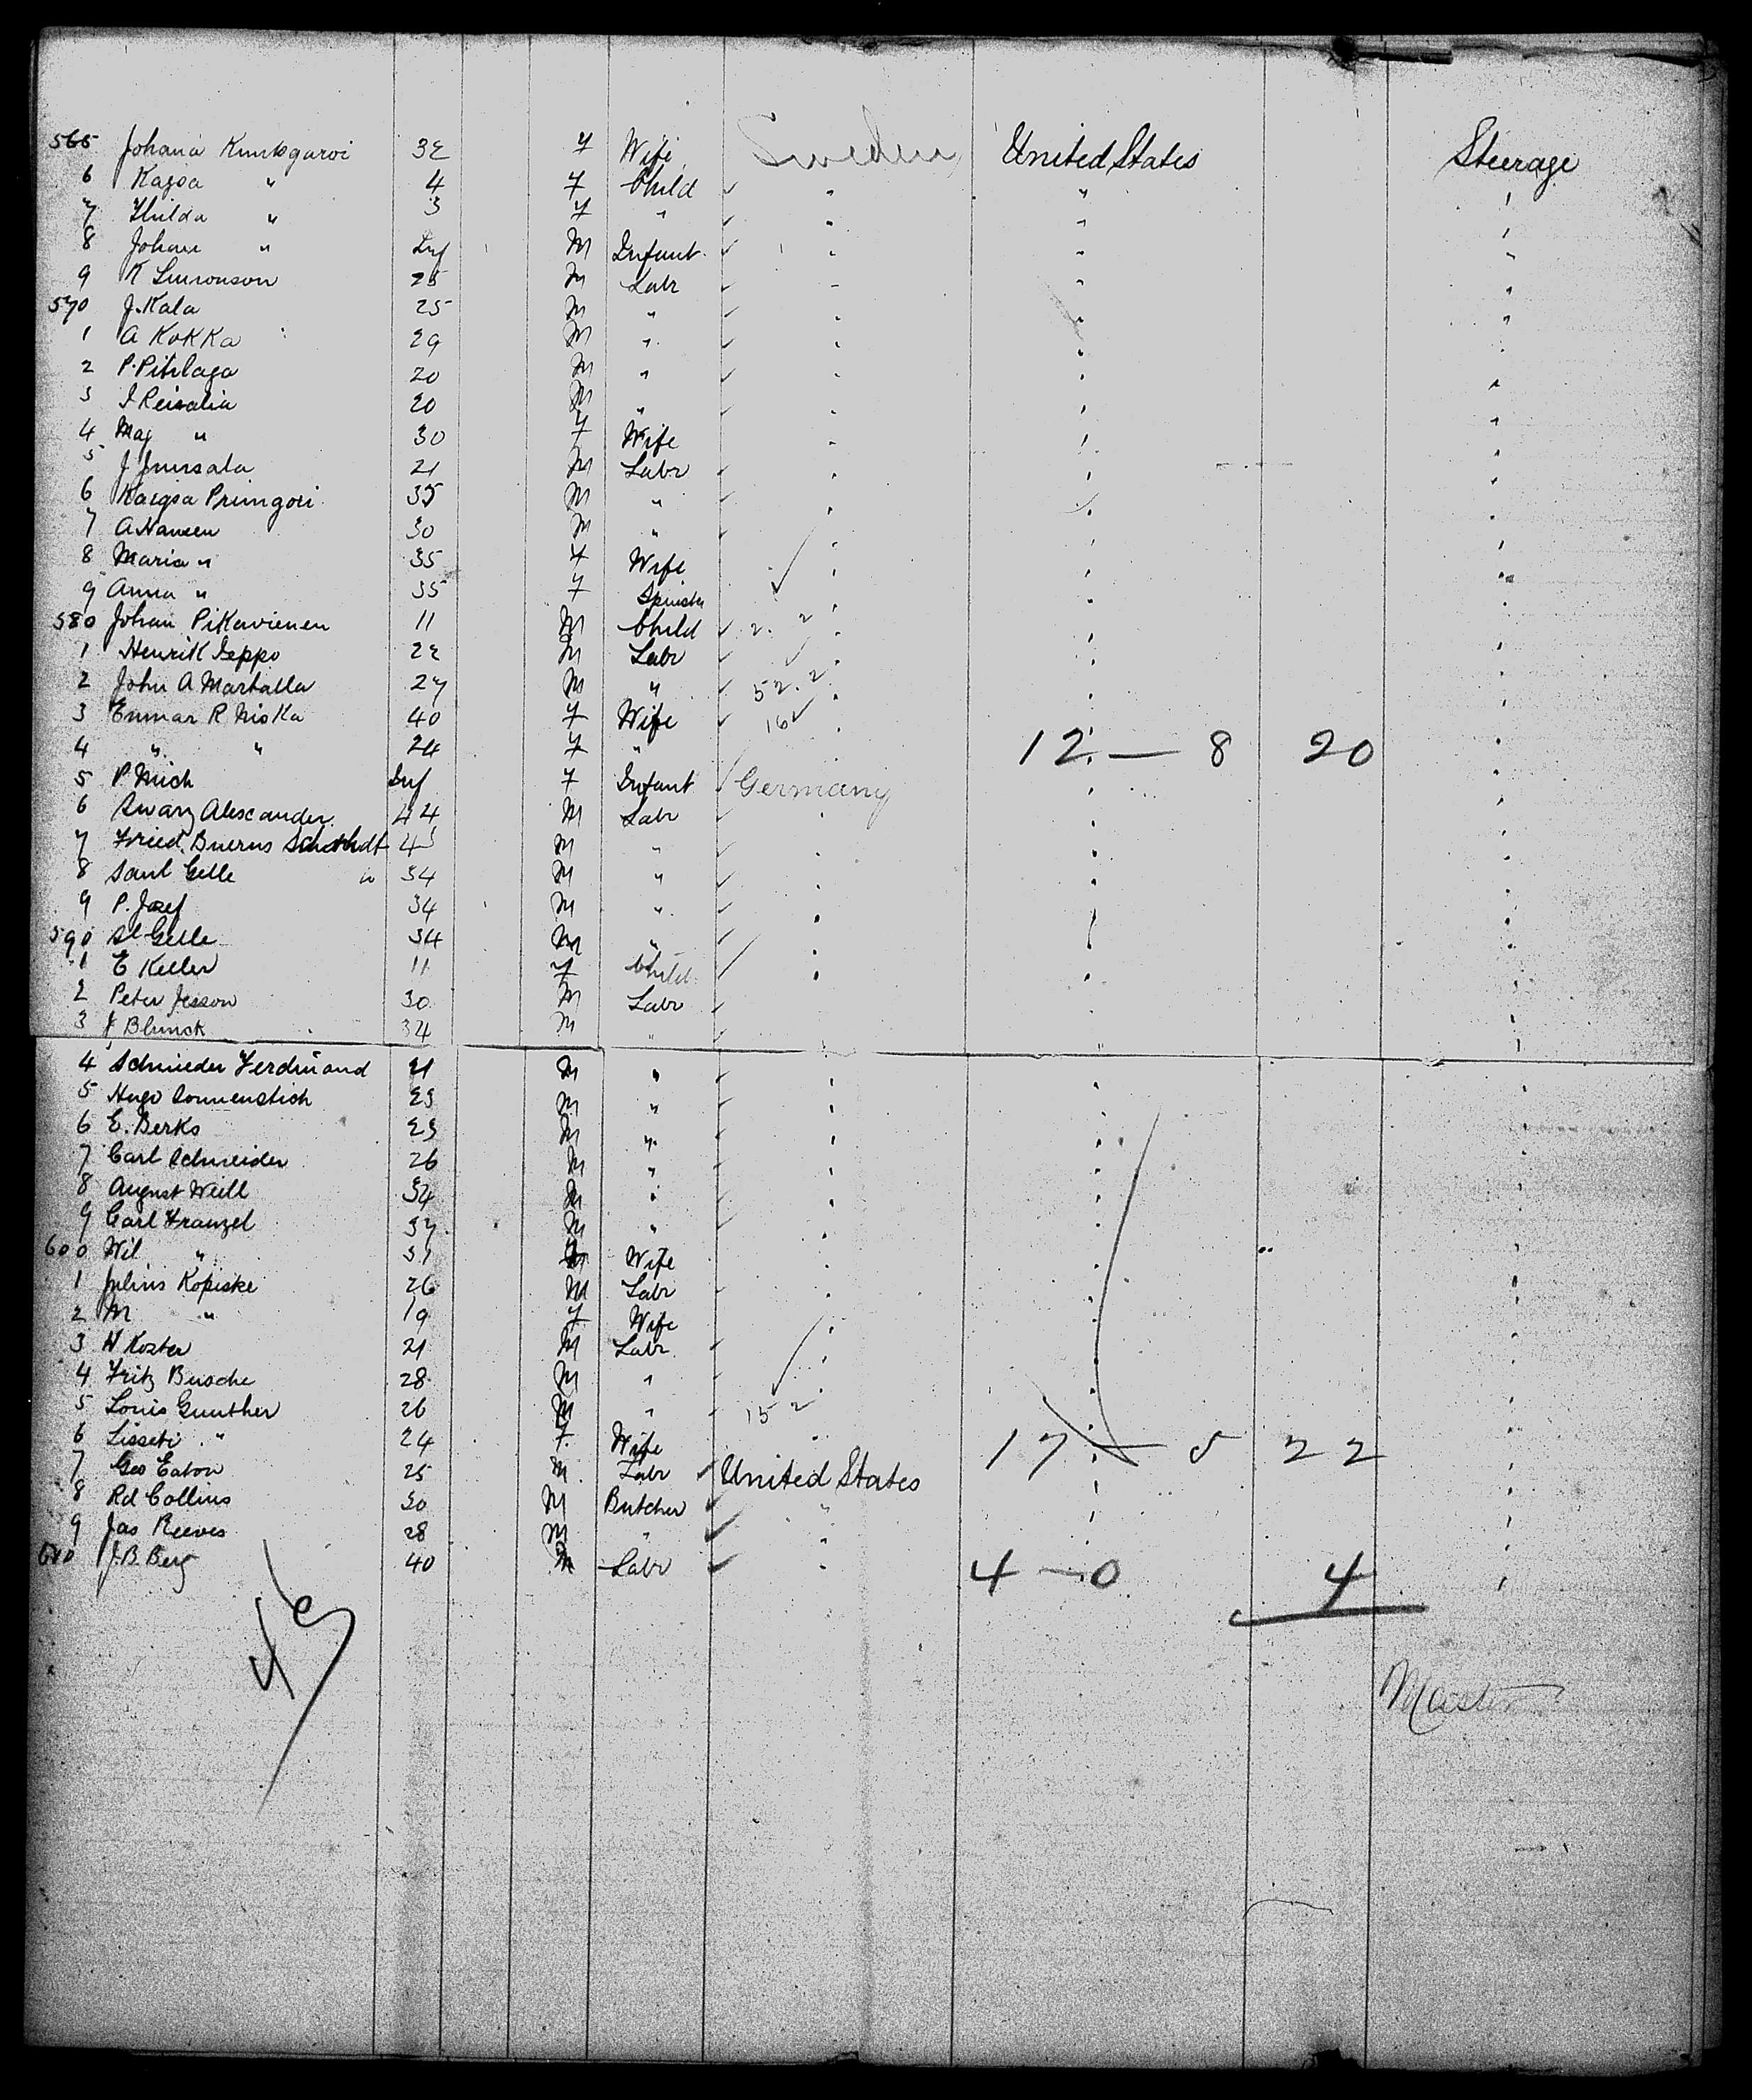 565 Johana Kuntsgaroi 32 F Wife Sweden United States Steerage
6 Kagsa " 4 F Child " " "
7 Hilda " 3 F " " " "
8 Johan " Inf M Infant " " "
9 K Simonson 25 M Labr " " "
570 J. Kala 25 M " " " "
1 A Kokka 29 M " " " "
2 P. Pitilaga 20 M " " " "
3 I Reisalia 20 M " " " "
4 Mag " 30 F Wife " " "
5 J 21 M Labr " " "
6 Kaigsa Primgori 35 M " " " "
7 A Hansen 30 M " " " "
8 Maria " 35 F Wife " " "
9 Anna " 35 F Spinster " " "
580 Johan Pikavienen 11 M Child 2. 2 " " "
1 Henrik Seppo 22 M Labr " " "
2 John A Martalla 27 M " 52. 2 " " "
3 Enmar R Niska 40 F Wife 16 " " "
4 " " 24 F " 12 — 8 20 "
5 P. Mich Inf F Infant Germany " "
6 Swarz Alexander 44 M Labr " " "
7 Fried. Buerns 45 M " " " "
8 Saul Gelle 34 M " " " "
9 P. Josef 34 M " " " "
590 Sl Gelle 34 M " " " "
1 E Keller 11 F Child " " "
2 Peter Jesson 30 M Labr " " "
3 J Blunck 34 M " " " "
4 Schnieder Ferdinand 21 M " " " "
5 Hugo Sonnenstich 23 M " " " "
6 E. Berks 23 M " " " "
7 Carl Schneider 26 M " " " "
8 August Weill 34 M " " " "
9 Carl Franzel 37 M " " " "
600 Wil " 31 Wife " " "
1 Julius Kopiske 26 M Labr " " "
2 M " 19 F Wife " " "
3 W Koster 21 M Labr " " "
4 Fritz Busche 28 M " " " "
5 Louis Gunther 26 M " 15 2 " "
6 Lisseti " 24 F Wife " 17 — 5 22 "
7 Geo Eaton 25 M Labr United States " "
8 Rd Collins 30 M Butcher " " "
9 Jas Reeves 28 M " " " "
610 J. B. Berg 40 M Labr " 4 — 0 4 "
Master